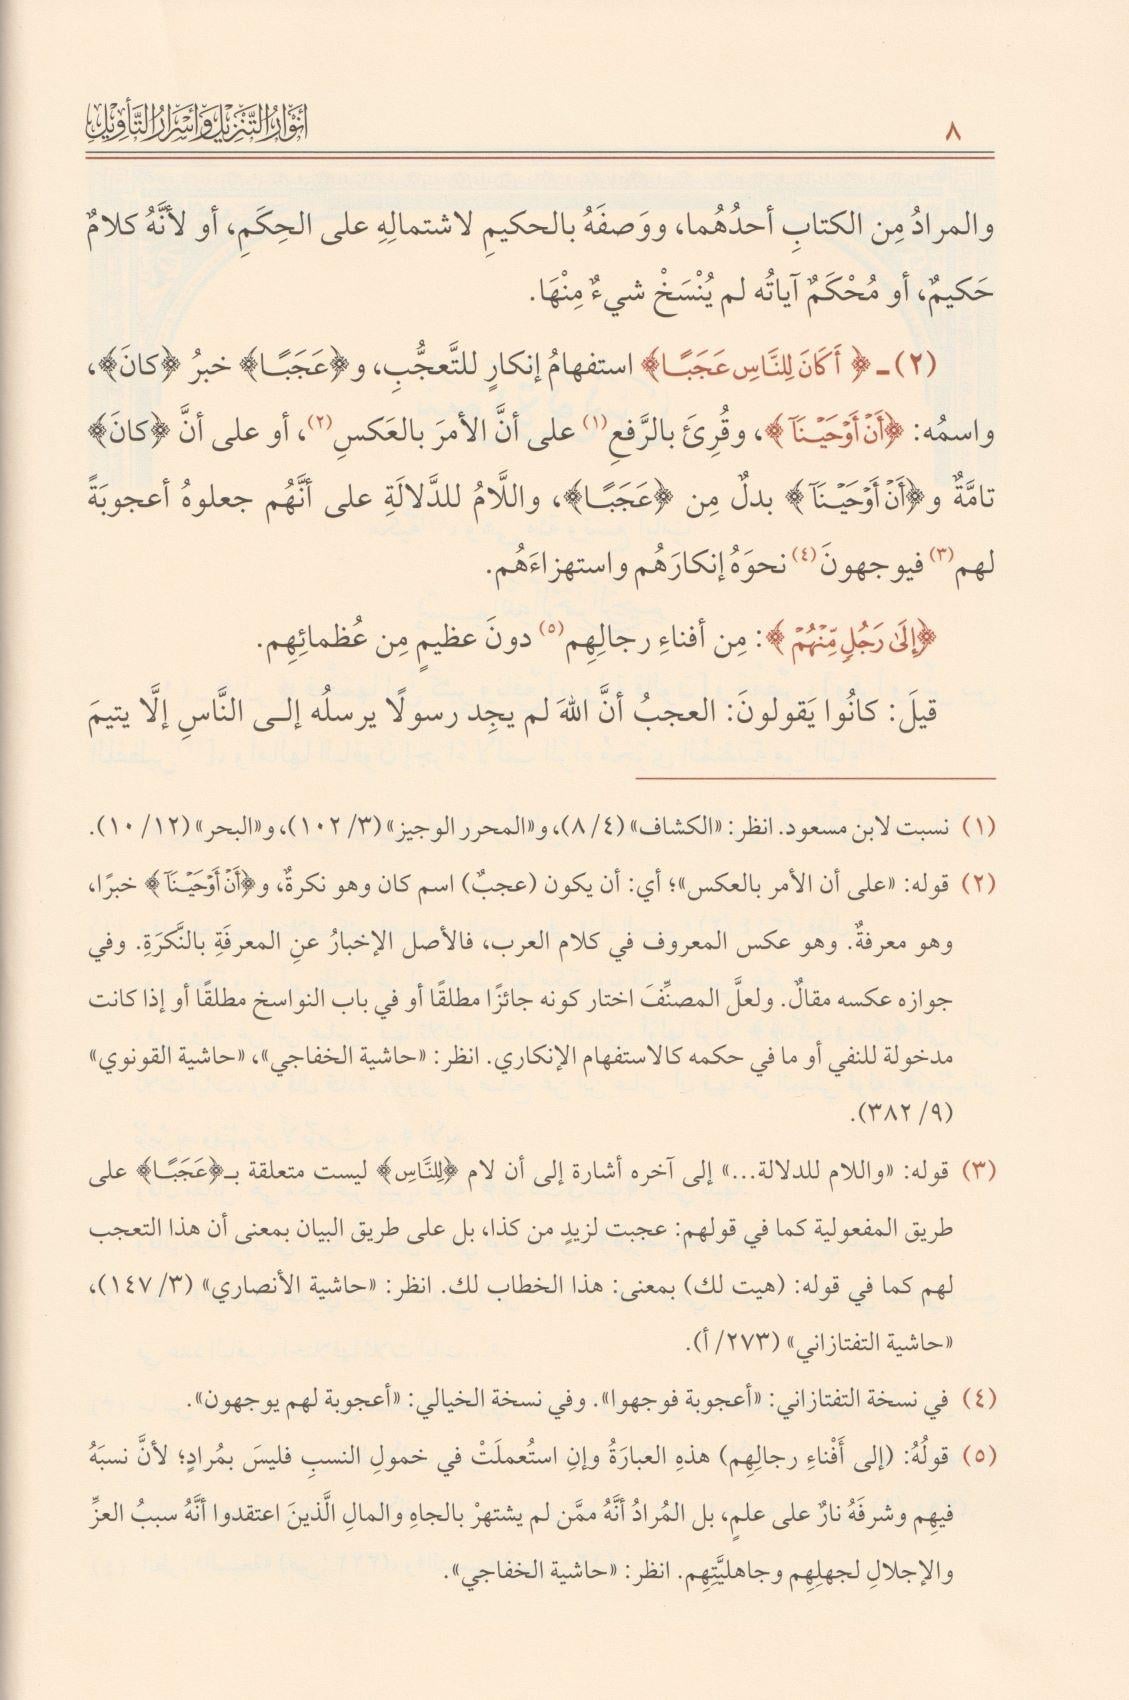 أنوار التنزيل وأسرار التأويل
٨
والمرادُ مِن الكتابِ أحدُهُما، ووَصفَهُ بالحكيمِ لاشتمالِهِ على الحِكَمِ، أو لأنَّهُ كلامٌ
حَكيمٌ، أو مُحْكَمٌ آياتُه لم يُنْسَخْ شيءٌ مِنْهَا.
(٢) ـ ﴿أَكَانَ لِلنَّاسِ عَجَبًا﴾ استفهامُ إنكارٍ للتَّعجُّبِ، و﴿عَجَبًا﴾ خبرُ ﴿كانَ﴾،
واسمُه: ﴿أَنْ أَوْحَيْنَآ﴾، وقُرِئَ بالرَّفعِ(١) على أنَّ الأمرَ بالعَكسِ(٢)، أو على أنَّ ﴿كانَ﴾
تامَّةٌ و﴿أَنْ أَوْحَيْنَآ﴾ بدلٌ مِن ﴿عَجَبًا﴾، واللَّامُ للدَّلالَةِ على أنَّهُم جعلوهُ أعجوبَةً
لهم(٣) فيوجهونَ(٤) نحوَهُ إنكارَهُم واستهزاءَهُم.
﴿إِلَىٰ رَجُلٍ مِّنْهُمْ﴾: مِن أفناءِ رجالِهِم(٥) دونَ عظيمٍ مِن عُظمائِهِم.
قيلَ: كانُوا يَقولونَ: العجبُ أنَّ اللهَ لم يجِد رسولًا يرسلُه إلى النَّاسِ إلَّا يتيمَ
(١) نسبت لابن مسعود. انظر: «الكشاف» (٤/ ٨)، و«المحرر الوجيز» (٣/ ١٠٢)، و«البحر» (١٢/ ١٠).
(٢) قوله: «على أن الأمر بالعكس»؛ أي: أن يكون (عجبٌ) اسم كان وهو نكرةٌ، و﴿أَنْ أَوْحَيْنَآ﴾ خبرًا،
وهو معرفةٌ. وهو عكس المعروف في كلام العرب، فالأصل الإخبارُ عنِ المعرفَةِ بالنَّكرَةِ. وفي
جوازه عكسه مقالٌ. ولعلَّ المصنِّفَ اختار كونه جائزًا مطلقًا أو في باب النواسخ مطلقًا أو إذا كانت
مدخولة للنفي أو ما في حكمه كالاستفهام الإنكاري. انظر: «حاشية الخفاجي»، «حاشية القونوي»
(٩/ ٣٨٢).
(٣) قوله: «واللام للدلالة...» إلى آخره أشارة إلى أن لام ﴿لِلنَّاسِ﴾ ليست متعلقة بـ﴿عَجَبًا﴾ على
طريق المفعولية كما في قولهم: عجبت لزيدٍ من كذا، بل على طريق البيان بمعنى أن هذا التعجب
لهم كما في قوله: (هيت لك) بمعنى: هذا الخطاب لك. انظر: «حاشية الأنصاري» (٣/ ١٤٧)،
«حاشية التفتازاني» (٢٧٣/ أ).
(٤) في نسخة التفتازاني: «أعجوبة فوجهوا». وفي نسخة الخيالي: «أعجوبة لهم يوجهون».
(٥) قولُهُ: (إلى أَفْناءِ رجالِهِم) هذهِ العبارَةُ وإنِ استُعملَتْ في خمولِ النسبِ فليسَ بمُرادٍ؛ لأنَّ نسبَهُ
فيهِم وشرفَهُ نارٌ على علمٍ، بل المُرادُ أنَّهُ ممَّن لم يشتهرْ بالجاهِ والمالِ الَّذينَ اعتقدوا أنَّهُ سببُ العزِّ
والإجلالِ لجهلِهِم وجاهليَّتِهِم. انظر: «حاشية الخفاجي».